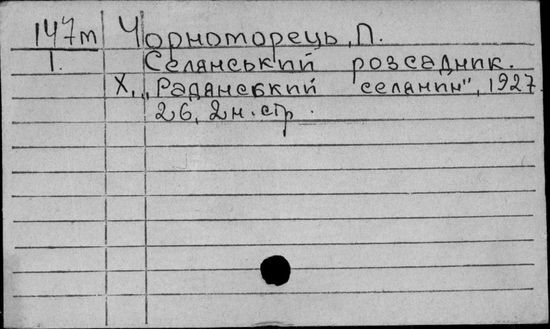 147m Чорноторець, П.
1. Селянський розсадник.
Х., „Радянський селянин", 1927.
26, 2 н. стр.